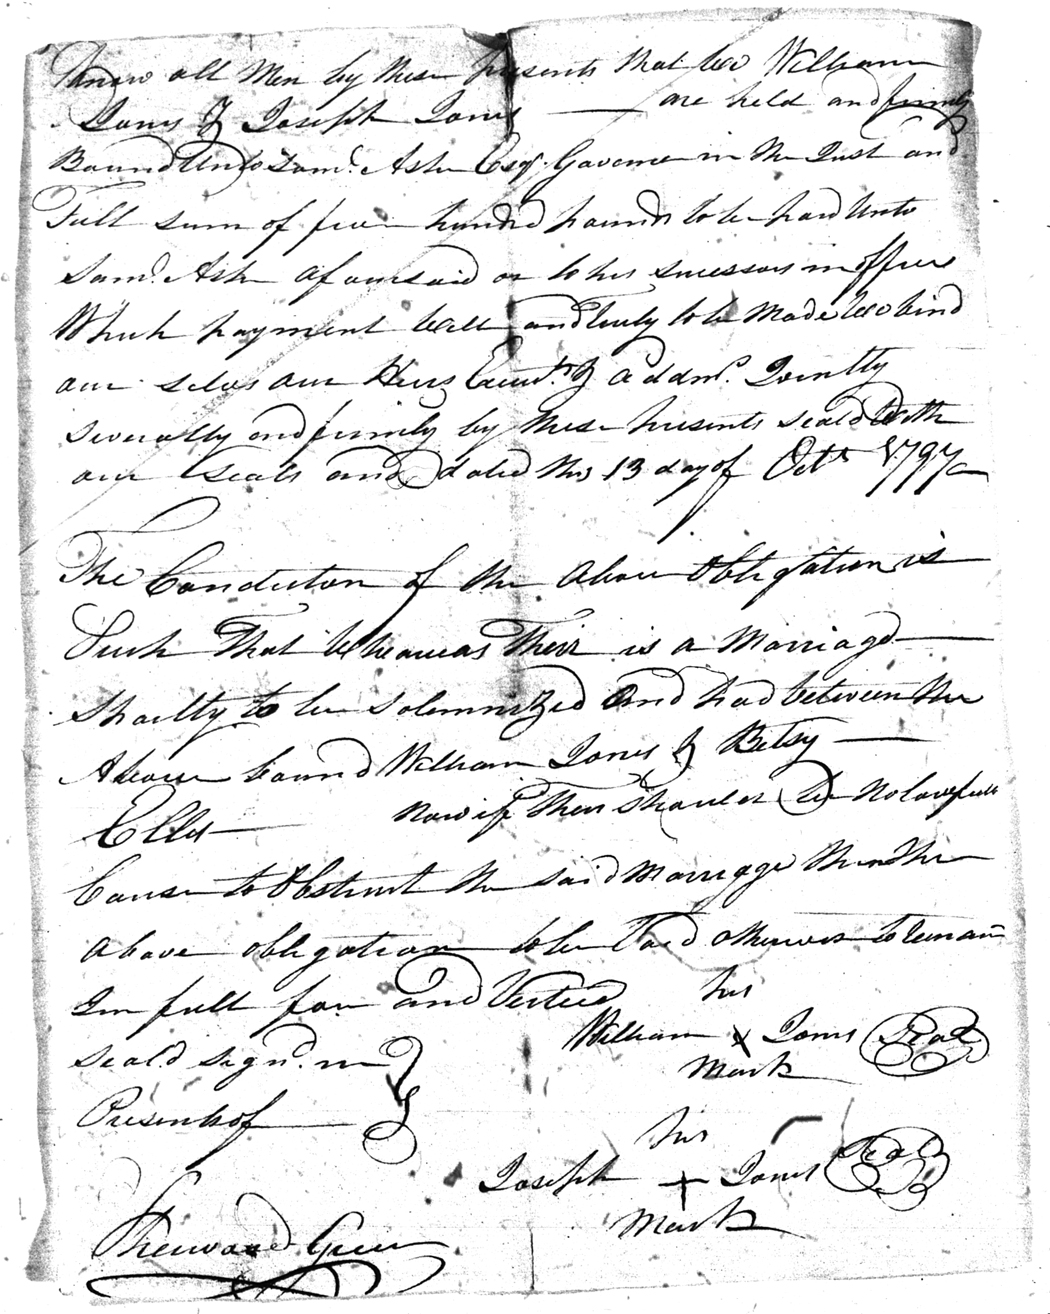 Know all Men by these presents that we William
Jones & Joseph Jones are held and firmly
Bound Unto Saml. Ashe Esqr. Governer in the Just and
Full sum of five hundred pounds to be paid Unto
Saml. Ashe aforesaid or to his successors in office
Which payment well and truly to be Made We bind
our selves our Heirs Execut.rs & addmrs. Jointly
severally and firmly by these presents seald With
our Seals and dated this 13 day of Octr. 1797
The Condition of the Above Obligation is
Such That Whereas Their is a Marriage
Shortly to be Solemnized and had between the
Above bound William Jones & Betsy
Ellis Now if Their Should be No lawfull
Cause to Obstruct the said Marriage then the
Above obligation to be Void otherwis to remain
In full force and Vertue
his
William x Jones Seal
Mark
Seald Signd. in
Presents of
his
Joseph + Jones Seal
Mark
Sherwood Green